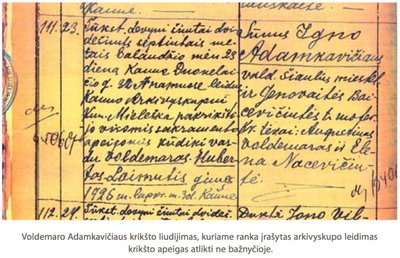 Kaune.
111.23.
Tūkst. devyni šimtai dvi-
dešimts septintais me-
tais Balandžio mėn 23
dieną Kaune Duonelai-
čio g. 32 Anamnose leidus
Kauno Arkivyskupui
kun. Mieleška pakrikšti-
jo visomis sakramento
apeigomis kūdikį var-
du Voldemaras Huber-
tas Laimutis gimęs
1926 m. lapkr. m. 3 d. Kaune
Sūnus Igno
Adamkavičiaus
vald. Šiaulių miesto
ir Genovaitės Bai-
cevičiutės t. moter.
Kr. tėvai: Augustinas
Voldemaras ir Ele-
na Nacevičiu-
112.24.
Tūkst. devyni šimtai dvideš.
Duktė Jono
Voldemaro Adamkavičiaus krikšto liudijimas, kuriame ranka įrašytas arkivyskupo leidimas
krikšto apeigas atlikti ne bažnyčioje.